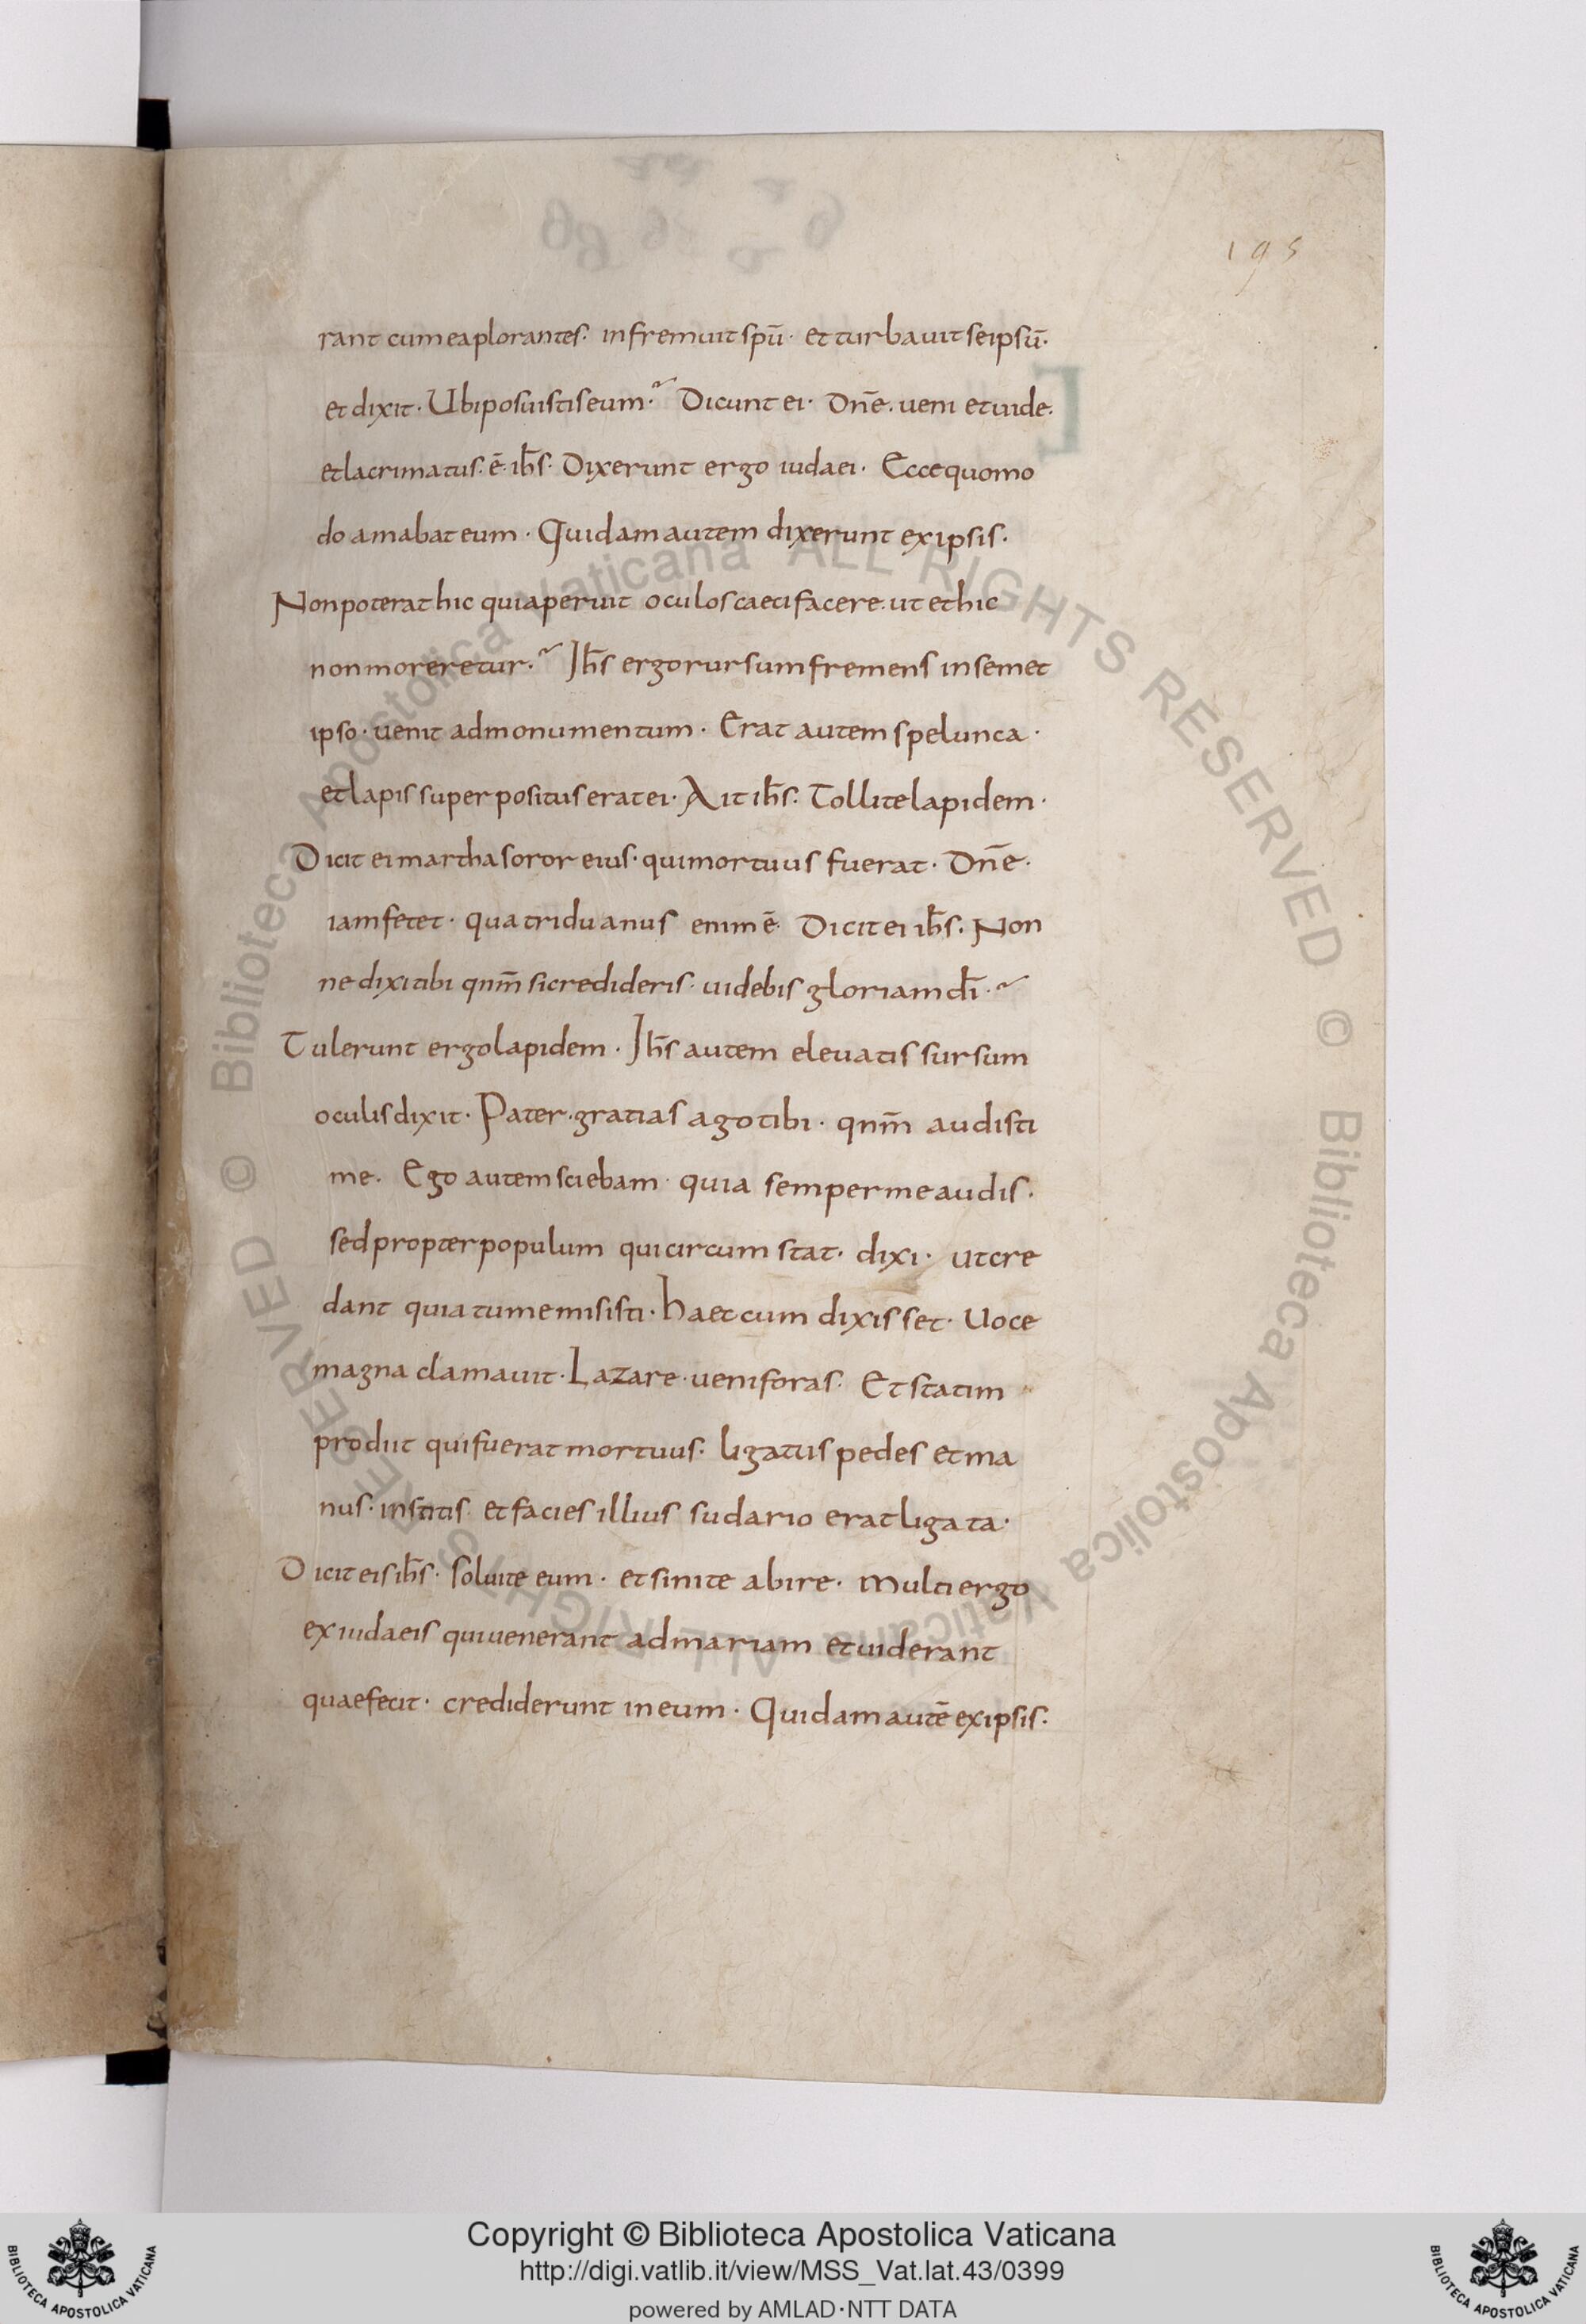 195
rant cum ea plorantes· infremuit spū· et turbauit seipsū·
et dixit· Ubi posuistis eum· Dicunt ei· Dn̄e· ueni et uide·
et lacrimatus· ē· ih̄s· Dixerunt ergo iudaei· Ecce quomo
do amabat eum· Quidam autem dixerunt ex ipsis·
Non poterat hic qui aperuit oculos caeci facere· ut et hic
non moreretur· Ih̄s ergo rursum fremens in semet
ipso· uenit ad monumentum· Erat autem spelunca·
et lapis superpositus erat ei· Ait ih̄s· Tollite lapidem·
Dicit ei martha soror eius· qui mortuus fuerat· Dn̄e·
iam fetet· quatriduanus enim ē· Dicit ei ih̄s· Non
ne dixi tibi qnm̄ si credideris· uidebis gloriam dī·
Tulerunt ergo lapidem· Ih̄s autem eleuatis sursum
oculis dixit· Pater· gratias ago tibi· qnm̄ audisti
me· Ego autem sciebam· quia semper me audis·
sed propter populum qui circumstat· dixi· ut cre
dant quia tu me misisti· haec cum dixisset· Uoce
magna clamauit· Lazare· ueni foras· Et statim
prodiit qui fuerat mortuus· ligatus pedes et ma
nus· institis· et facies illius sudario erat ligata·
Dicit eis ih̄s· soluite eum· et sinite abire· Multi ergo
ex iudaeis qui uenerant ad mariam et uiderant
quae fecit· crediderunt in eum· Quidam autē ex ipsis·
© Biblioteca Apostolica Vaticana ALL RIGHTS RESERVED © Biblioteca Apostolica Vaticana ALL RIGHTS RESERVED
Copyright © Biblioteca Apostolica Vaticana
http://digi.vatlib.it/view/MSS_Vat.lat.43/0399
powered by AMLAD·NTT DATA
BIBLIOTECA APOSTOLICA VATICANA
BIBLIOTECA APOSTOLICA VATICANA